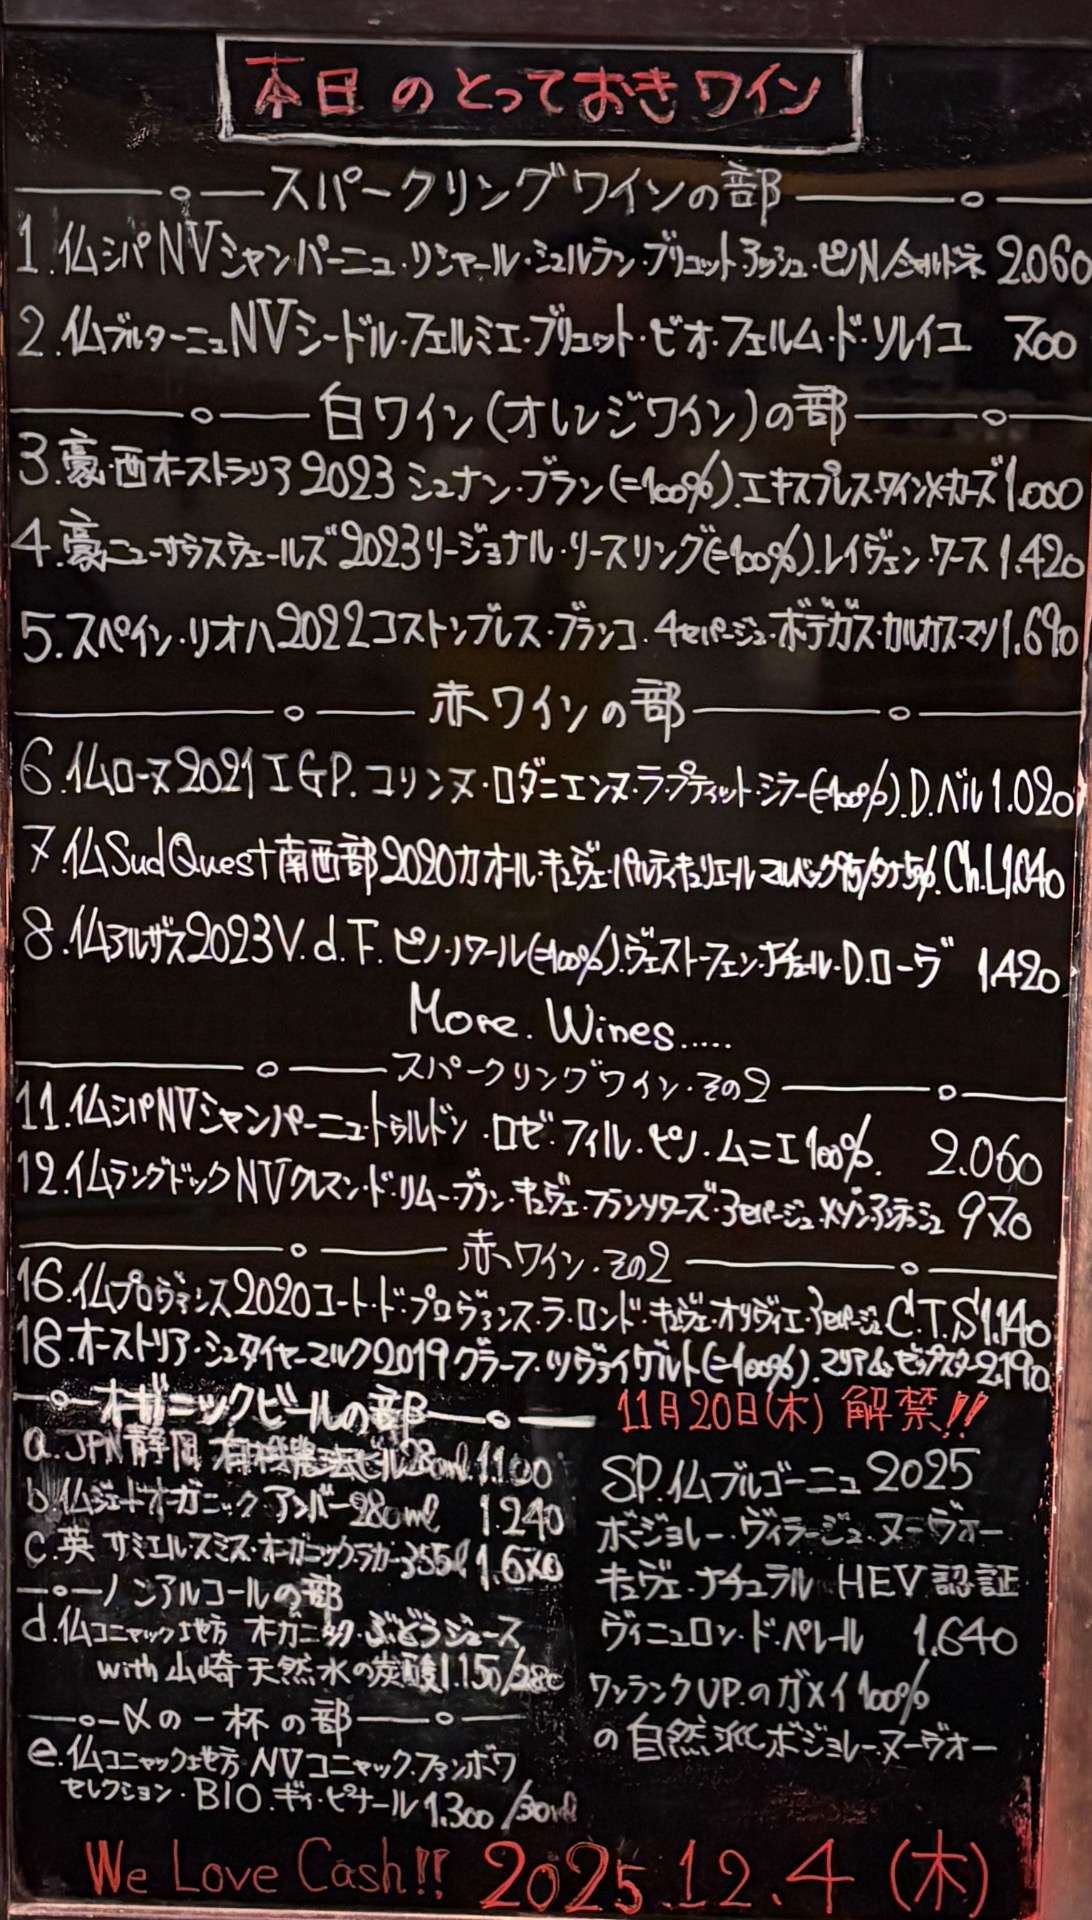 本日のとっておきワイン
スパークリングワインの部
1.仏シパNVシャンパーニュ・リシャール・シュルラン・ブリュット・アッシュ・ピノN/シャルドネ 2.060
2.仏ブルターニュNVシードル・フェルミエ・ブリュット・ビオ・フェルム・ド・ソレイユ 700
白ワイン(オレンジワイン)の部
3.豪・西オーストラリア2023シュナン・ブラン(=100%).エキスプレス・ワインメーカーズ1.000
4.豪ニューサウスウェールズ2023リージョナル・リースリング(=100%).レイヴェン・ワース1.420
5.スペイン・リオハ2022コストンブレス・ブランコ.4セパージュ・ボデガス・カルカス・マソ1.690
赤ワインの部
6.仏ローヌ2021IGP.コリンヌ・ロダニエンヌ・ラ・プティット・シラー(=100%).D.ベル1.020
7.仏SudQuest南西部2020カオール・キュヴェ・パルティキュリエールマルベック95/タナ5%.Ch.L1.040
8.仏アルザス2023V.d.F.ピノ・ノワール(=100%).ヴェストーフェン・ナチュール・D.ローヴ 1.420
More.Wines.....
スパークリングワイン・その2
11.仏シパNVシャンパーニュ・トゥルドン.ロゼ・フィル・ピノ・ムニエ100%. 2.060
12.仏ラングドックNVクレマン・ド・リムー・ブラン・キュヴェ・フランソワーズ・3セパージュ・メゾン・アンテッシュ 970
赤ワイン・その2
16.仏プロヴァンス2020コート・ド・プロヴァンス・ラ・ロンド・キュヴェ・オリヴィエ・3セパージュC.T.S1.140
18.オーストリア・シュタイヤーマルク2019グラーフ・ツヴァイゲルト(=100%).マリアム・ゼップスター2.190
オーガニックビールの部
a.JPN静岡 有機農法ビール28 ml.1.100
b.仏ジェードオーガニックアンバー280ml 1.240
c.英 サミエルスミス・オーガニックラガー355l1.670
ノンアルコールの部
d.仏コニャック地方 オーガニック・ぶどうジュース
with山崎天然水の炭酸1.150/280
〆の一杯の部
e.仏コニャック地方NVコニャックファンボワ
セレクション・BIO.ギィ・ピナール1.300/30ml
11月20日(木)解禁!!
SP.仏ブルゴーニュ2025
ボージョレー・ヴィラージュ・ヌーヴォー
キュヴェ・ナチュラル HEV認証
ヴィニュロン・ド・ベレール 1.640
ワンランクUP.のガメイ100%
の自然派ボジョレー・ヌーヴォー
We Love Cash!! 2025.12.4(木)